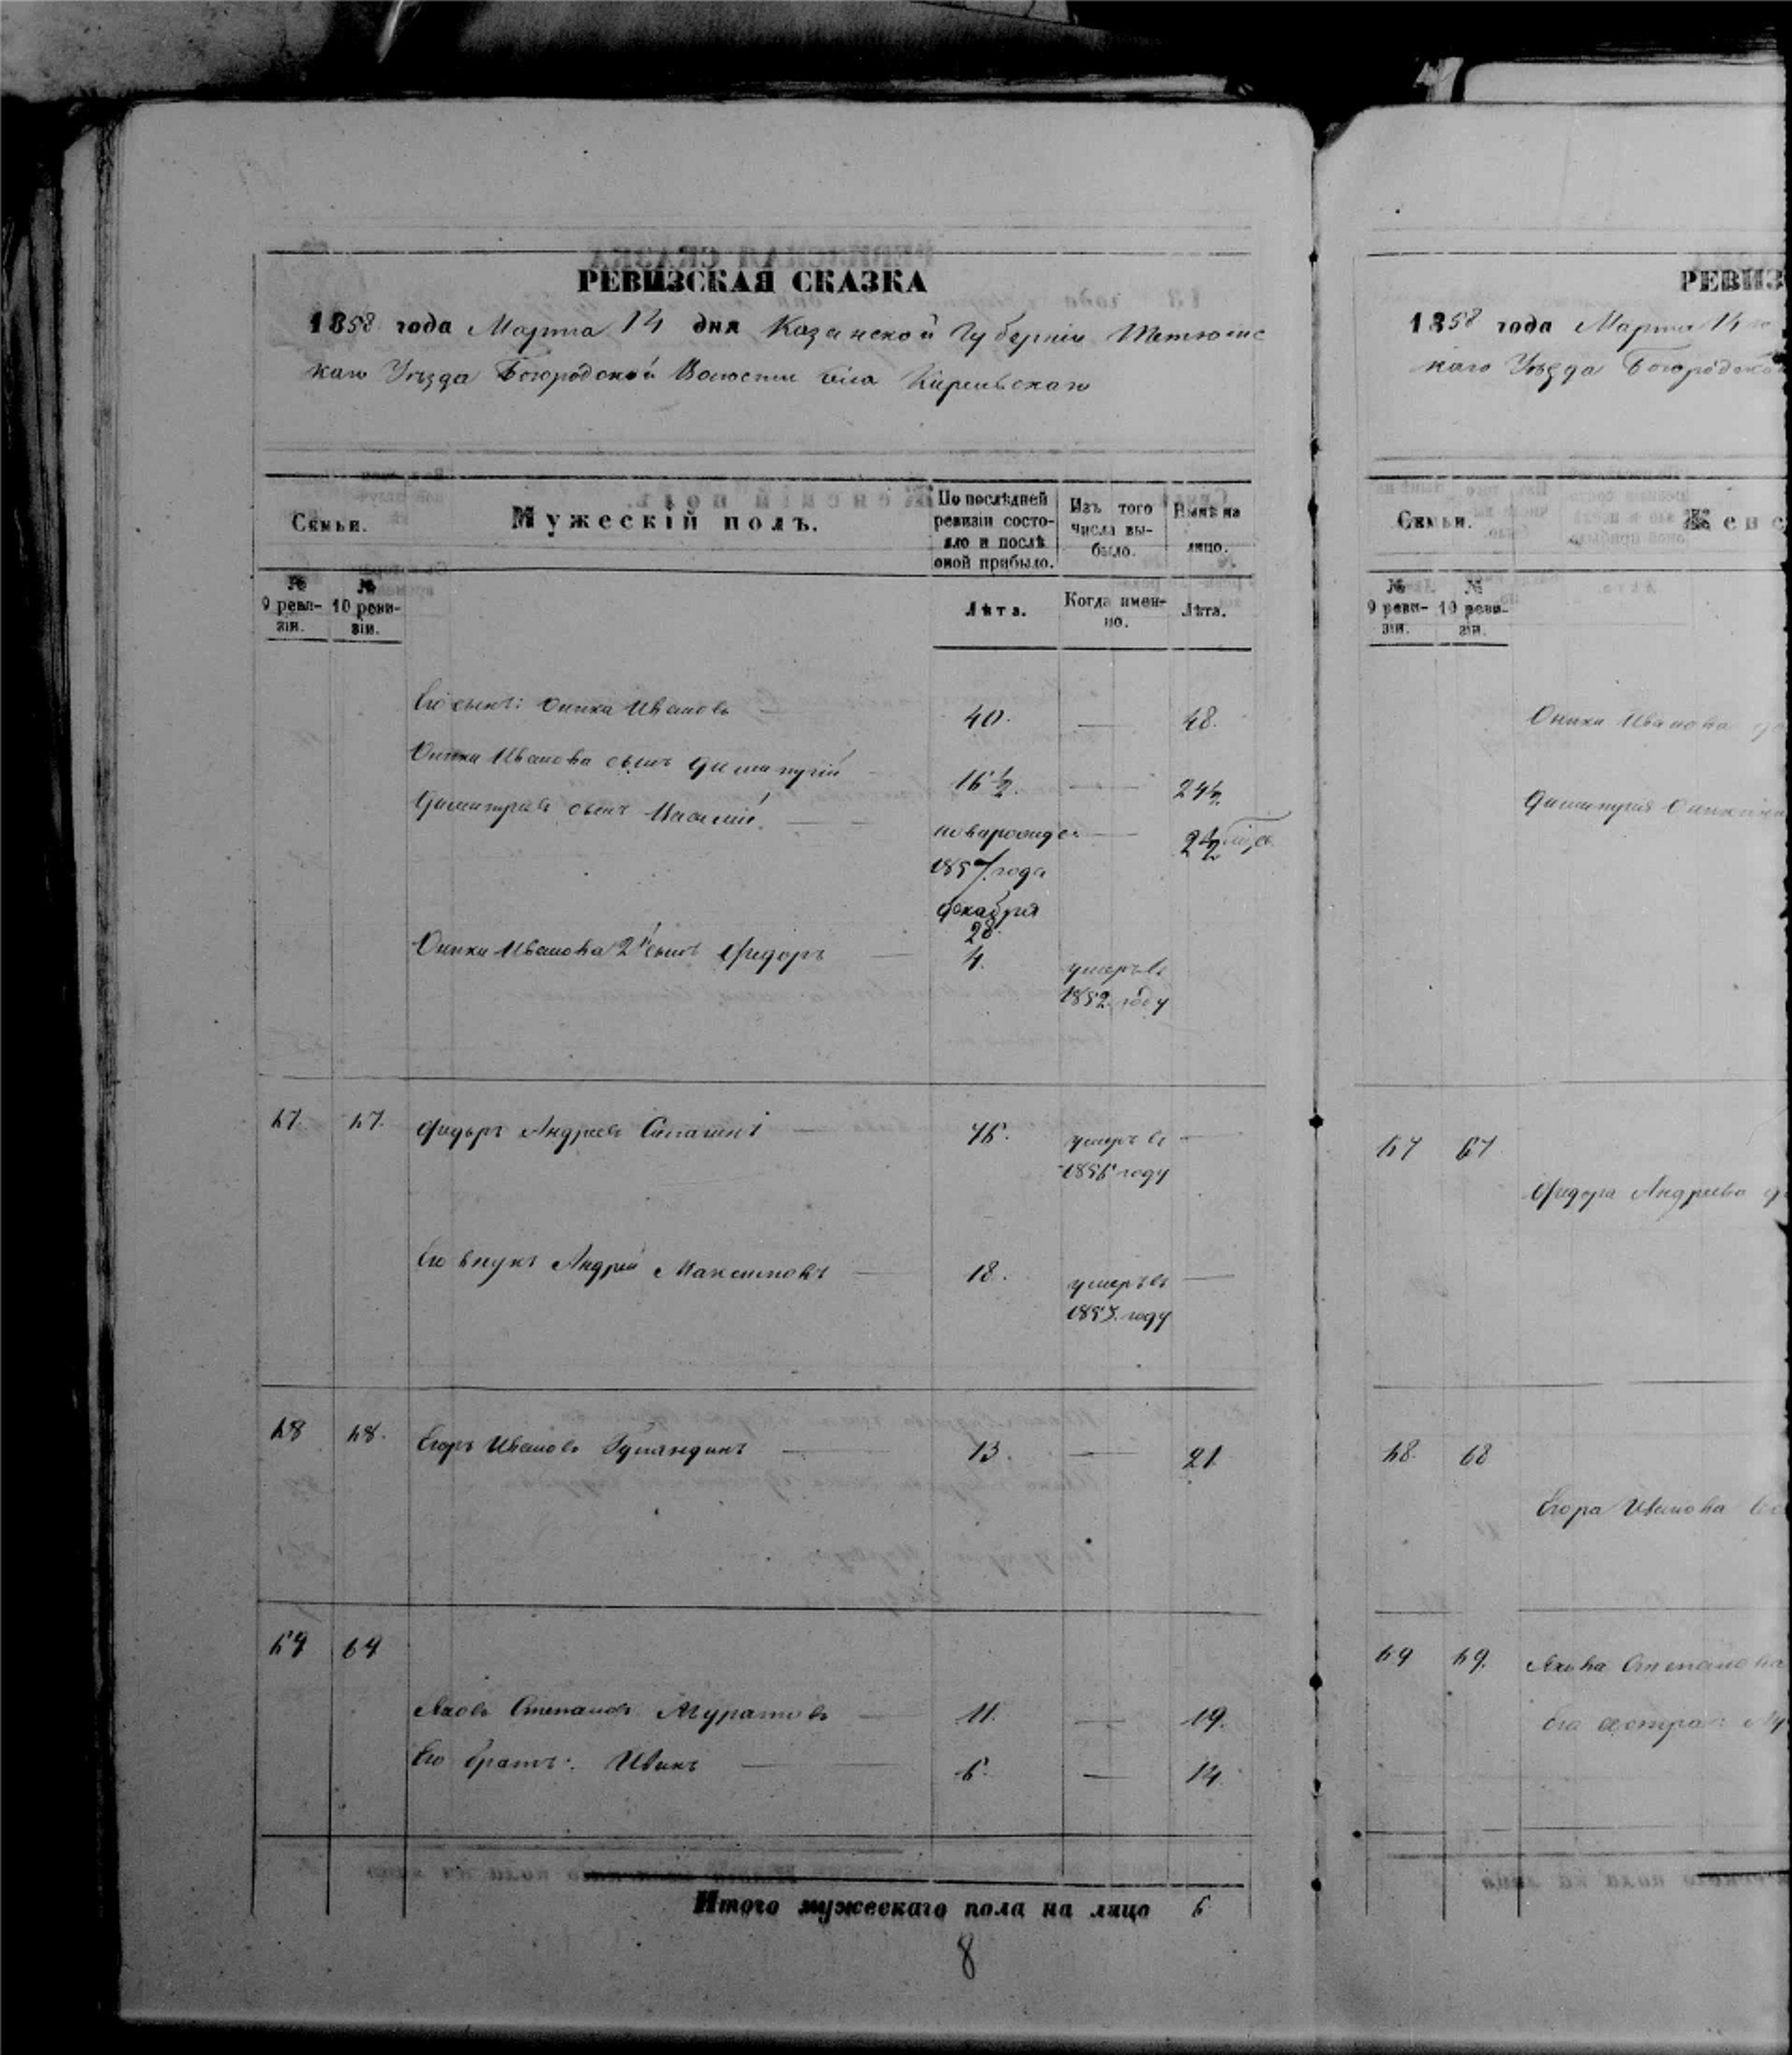 РЕВИЗСКАЯ СКАЗКА
1858 года Марта 14 дня Казанской Губерніи Тетюшс
каго Уѣзда Богородской Волости села
Семьи.
Мужескій полъ.
По послѣдней ревизіи состо-
яло и послѣ оной прибыло.
Изъ того числа вы-
было.
Нынѣ на лицо.
№ 9 реви-
зіи.
№ 10 реви-
зіи.
Лѣта.
Когда имен-
но.
Лѣта.
Его сынъ: Оника Ивановъ 40. — 48.
Оники Иванова сынъ Димитрій 16 ½. — 24 ½
Димитрія сынъ Василій новарожден — 2 ½ мѣс.
1857 года
декабря
28.
Оники Иванова 2й сынъ Федоръ 4. умеръ въ
1852 году
67. 67. Федоръ Андреевъ 76. умеръ въ —
1856 году
Его внукъ Андрей Максимовъ 18. умеръ въ —
году
68 68. Егоръ Ивановъ 13. — 21.
69 69
Яковъ Степановъ Муратовъ 11. — 19.
Его братъ: Иванъ 6. — 14.
Итого мужескаго пола на лицо 6
8
РЕВИЗ
1858 года Марта 14
каго Уѣзда Богородской
Семьи.
Женс
№ 9 реви-
зіи.
№ 10 реви-
зіи.
Оники Иванова
Димитрія
67 67
Федора Андреева
68. 68
Егора Иванова
69 69. Якова Степанова
Его сестра: